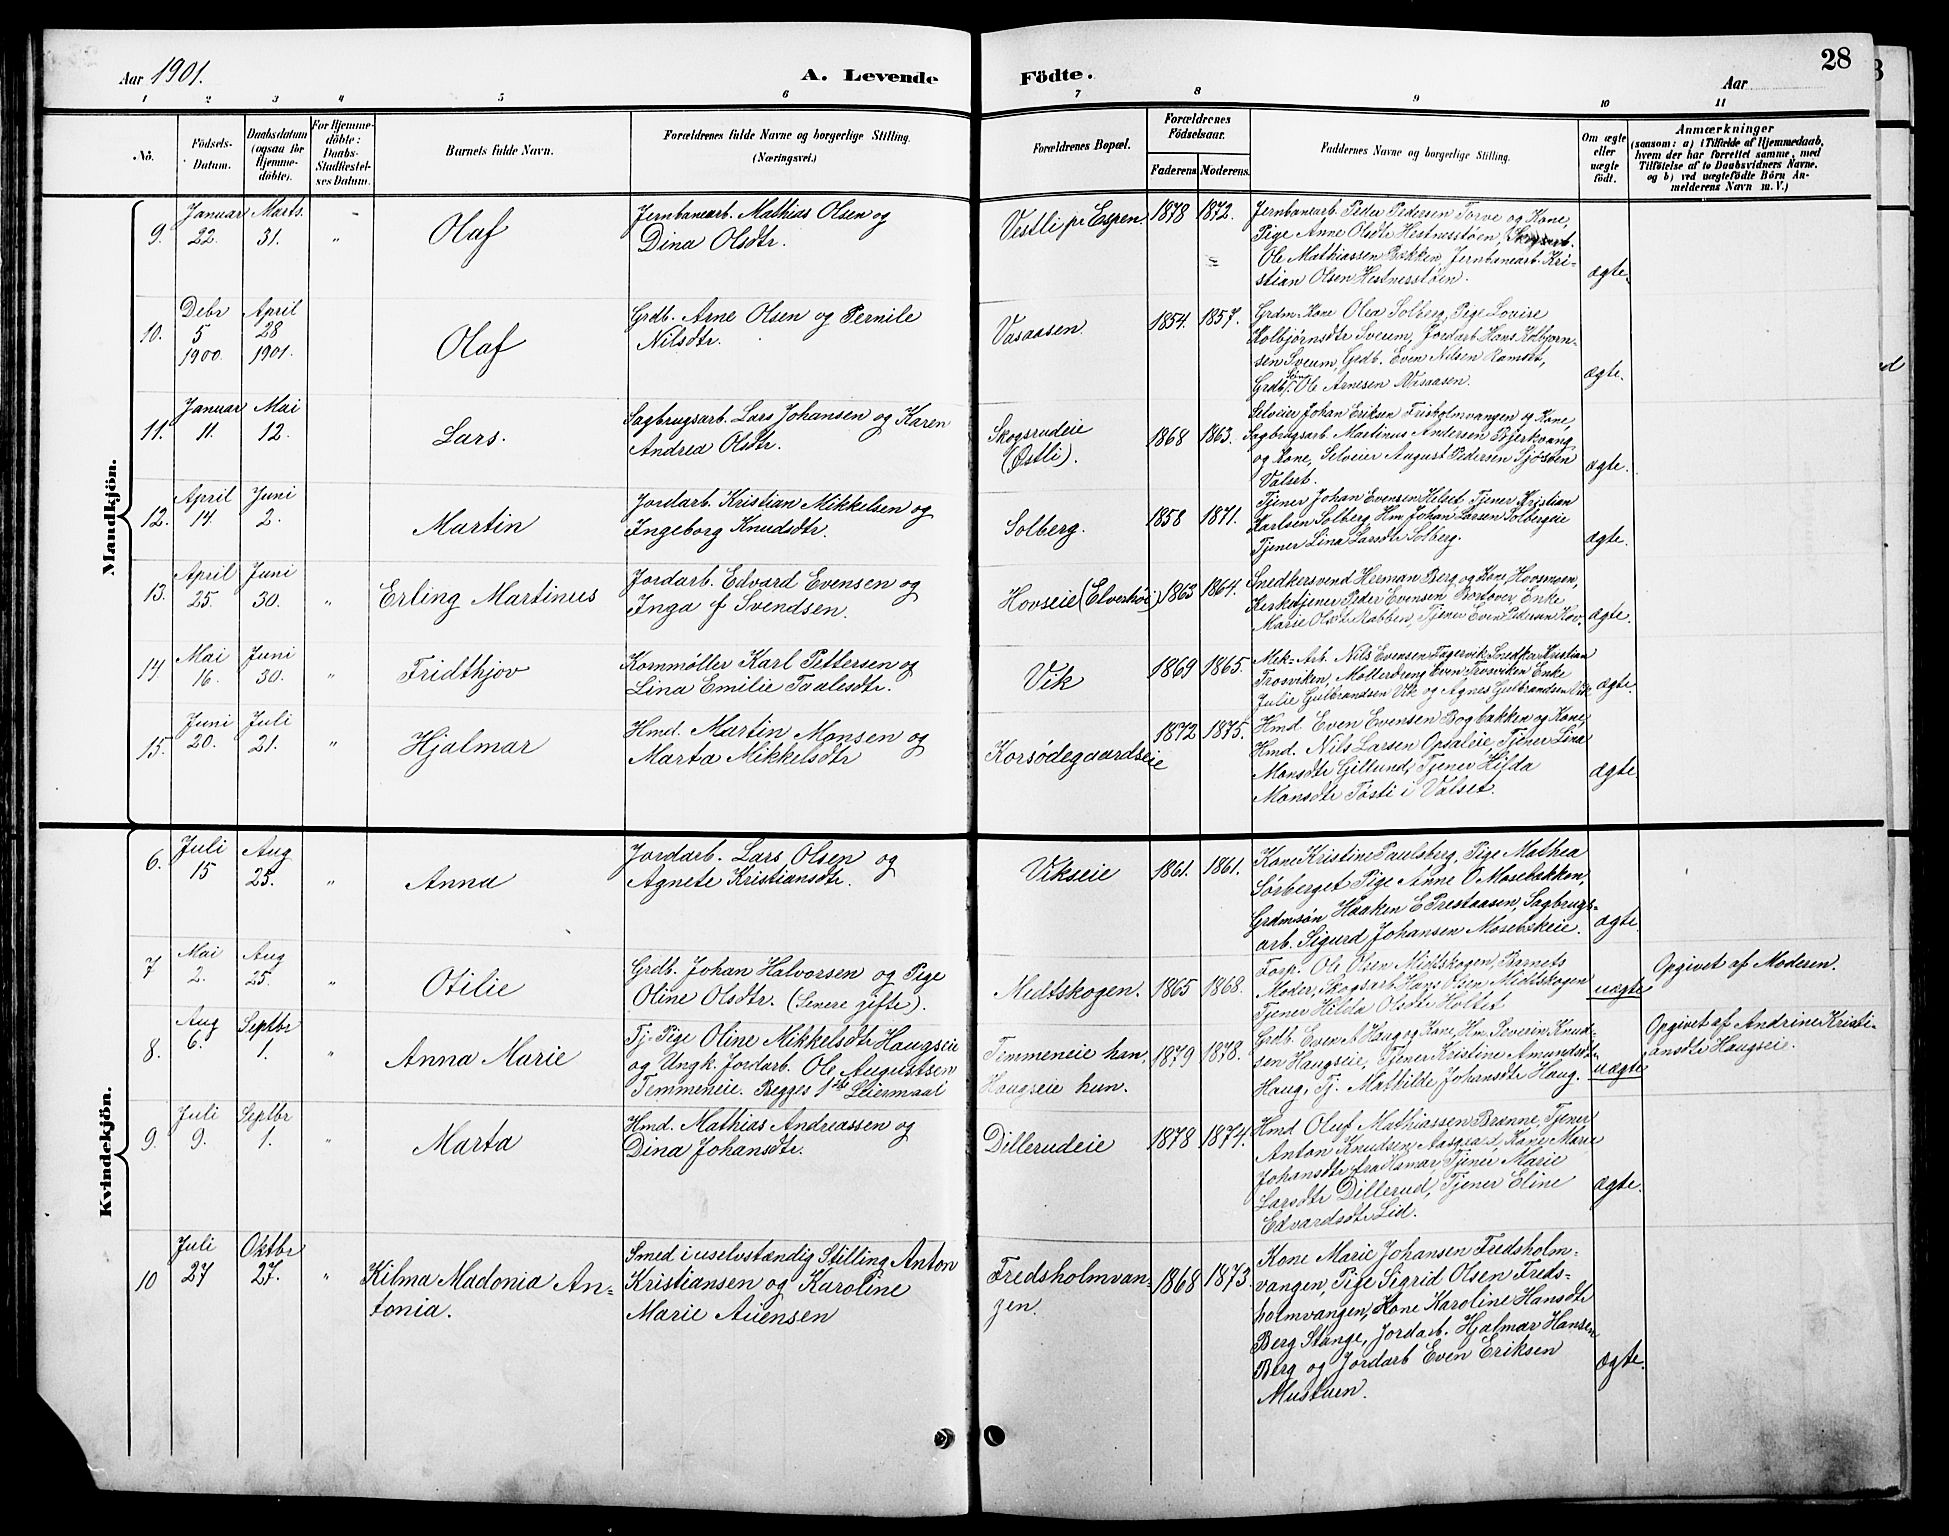 Aar 1901.
A. Levende
Födte.
Aar
28
1
2
3
4
5
6
7
8
9
10
11
No.
Födsels-
Datum.
Daabsdatum
(ogsaa for
Hjemme-
döbte).
For Hjemme-
döbte:
Daabs-
Stadfæstel-
ses Datum.
Barnets fulde Navn.
Forældrenes fulde Navne og borgerlige Stilling.
(Næringsvei.)
Forældrenes Bopæl.
Forældrenes
Födselsaar.
Faderens
Moderens.
Faddernes Navne og borgerlige Stilling.
Om ægte
eller
uægte
födt.
Anmærkninger
(saasom: a) i Tilfælde af Hjemmedaab,
hvem der har forrettet samme, med
Tilföielse af to Daabsvidners Navne,
og b) ved uægtefödte Börn An-
melderens Navn m. V.)
Mandkjön.
9.
Januar
22.
Marts.
31.
"
Olaf
Jernbanearb. Mathias Olsen og
Dina Olsdtr.
Vestli pr Espen.
1878
1872.
Jernbanearb. Peder Pedersen Torve og Kone,
Pige Anne Olsdtr Hestnesstøen, Skogsarb.
Ole Mathiassen Bakken, Jernbanearb. Kri-
stian Olsen Hestnesstøen.
ægte.
10.
Debr
5
1900.
April
28
1901.
Olaf
Grdb. Arne Olsen og Pernile
Nilsdtr.
Vasaasen.
1854.
1857.
Grdm. Kone Olea Solberg, Pige Lovise
Kolbjørnsdtr Sveum, Jordarb Hans Kolbjørn-
sen Sveum, Grdb. Even Nilsen Ramset,
Grdb. Søn Ole Arnesen Vasaasen.
ægte.
11.
Januar
11.
Mai
12.
Lars.
Sagbrugsarb. Lars Johansen og Karen
Andrea Olsdtr.
Skogsrudeie
(Østli).
1868
1863.
Selveier Johan Eriksen Frisholmvangen og Kone,
Sagbrugsarb. Martinus Andersen Bjerkvang
og Kone, Selveier August Pedersen Sjøsøen
Valset.
ægte.
12.
April
14.
Juni
2.
Martin
Jordarb. Kristian Mikkelsen og
Ingeborg Knudsdtr.
Solberg.
1858
1871.
Tjener Johan Evensen Helset, Tjener Kristian
Karlsen Solberg Hm Johan Larsen Solbergeie
Tjener Lina Larsdtr Solberg.
ægte.
13.
April
25.
Juni
30.
"
Erling Martinus
Jordarb. Edvard Evensen og
Inga f Svendsen.
Hovseie (Elverhøi)
1863
1864.
Snedkersvend Herman Berg og Kone Hovsmoen,
Kirketjener Peder Evensen Bortover Enke
Marie Olsdtr Rabben, Tjener Even Pedersen Hov.
ægte.
14
Mai
16.
Juni
30.
"
Fridthjov
Kornmøller Karl Pettersen og
Lina Emilie Paalesdtr.
Vik
1869
1865.
Mek-Arb. Nils Evensen Fagervik Snedker Kristian
Trosviken, Møllerdreng Even Trosviken Enke
Julie Gulbrandsen Vik og Agnes Gulbrandsen Vik
ægte.
15.
Juni
20.
Juli
21.
"
Hjalmar
Hmd. Martin Monsen og
Marta Mikkelsdtr
Korsødegaardseie
1872
1875.
Hmd. Even Evensen Bogbakken og Kone,
Hmd. Nils Larsen Opsaleie, Tjener Lina
Monsdtr Gillund, Tjener Hilda
Monsdtr Tøsti i Valset.
ægte
Kvindekjön.
6.
Juli
15
Aug
25.
"
Anna
Jordarb. Lars Olsen og
Agnete Kristiansdtr.
Vikseie
1861.
1861.
Kone Kristine Paulsberg, Pige Mathea
Sørberget Pige Anne O Mosebakken,
Grdmsøn Haaken E Prestaasen, Sagbrugs-
arb. Sigurd Johansen Mosebækeie.
ægte
7
Mai
2.
Aug
25.
"
Otilie
Grdb. Johan Halvorsen og Pige
Oline Olsdtr. (Senere gifte).
Nedtskogen.
1865
1868.
Forp. Ole Olsen Midtskogen, Barnets
Moder, Skogsarb Hans Olsen Midtskogen
Tjener Hilda Olsdtr Holtet
uægte
Opgivet af Moderen.
8.
Aug
6.
Septbr
1.
"
Anna Marie
Tj. Pige Oline Mikkelsdtr Haugseie
og Ungk. Jordarb. Ole Augustsen
Temmeneie. Begges 1ste Leiermaal
Temmeneie han,
Haugseie hun.
1879
1878.
Grdb. Even A Haug og Kone, Hm. Severin Knud-
sen Haugseie, Tjener Kristine Amundsdtr
Haug, Tj. Mathilde Johansdtr Haug.
uægte
Opgivet af Andrine Kristi-
ansdtr Haugseie.
9.
Juli
9.
Septbr
1.
"
Marta
Hmd. Mathias Andreassen og
Dina Johansdtr.
Dillerudeie
1878
1874.
Hmd Oluf Mathiassen Brønne, Tjener
Anton Knudsen Aasgaad, Kone Marie
Johansdtr fra Hamar, Tjener Marie
Larsdtr Dillerud, Tjener Eline
Edvardsdtr Lid.
ægte.
10
Juli
27
Oktbr
27.
"
Kilma Madonia An-
tonia.
Smed i uselvstændig Stilling Anton
Kristiansen og Karoline
Marie Auensen
Fredsholmvan-
gen.
1868
1873.
Kone Marie Johansen Fredsholm-
vangen, Pige Sigrid Olsen Freds-
holmvangen, Kone Karoline Hansdtr
Berg Stange, Jordarb. Hjalmar Hansen
Berg og Jordarb Even Eriksen
Musturn.
ægte.